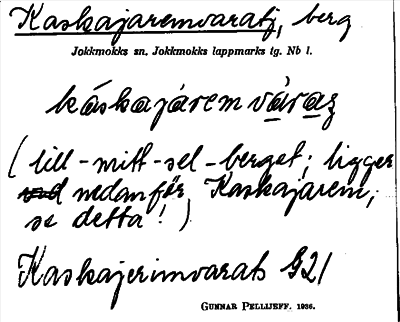 Kaskajaremvaratj, berg
Jokkmokks sn. Jokkmokks lappmarks tg. Nb l.
káskajárem váraz
(lill-mitt-sel-berget; ligger
nedanför Kaskajarem;
se detta!)
Kaskajerimvarats G21
GUNNAR PELLIJEFF. 1936.